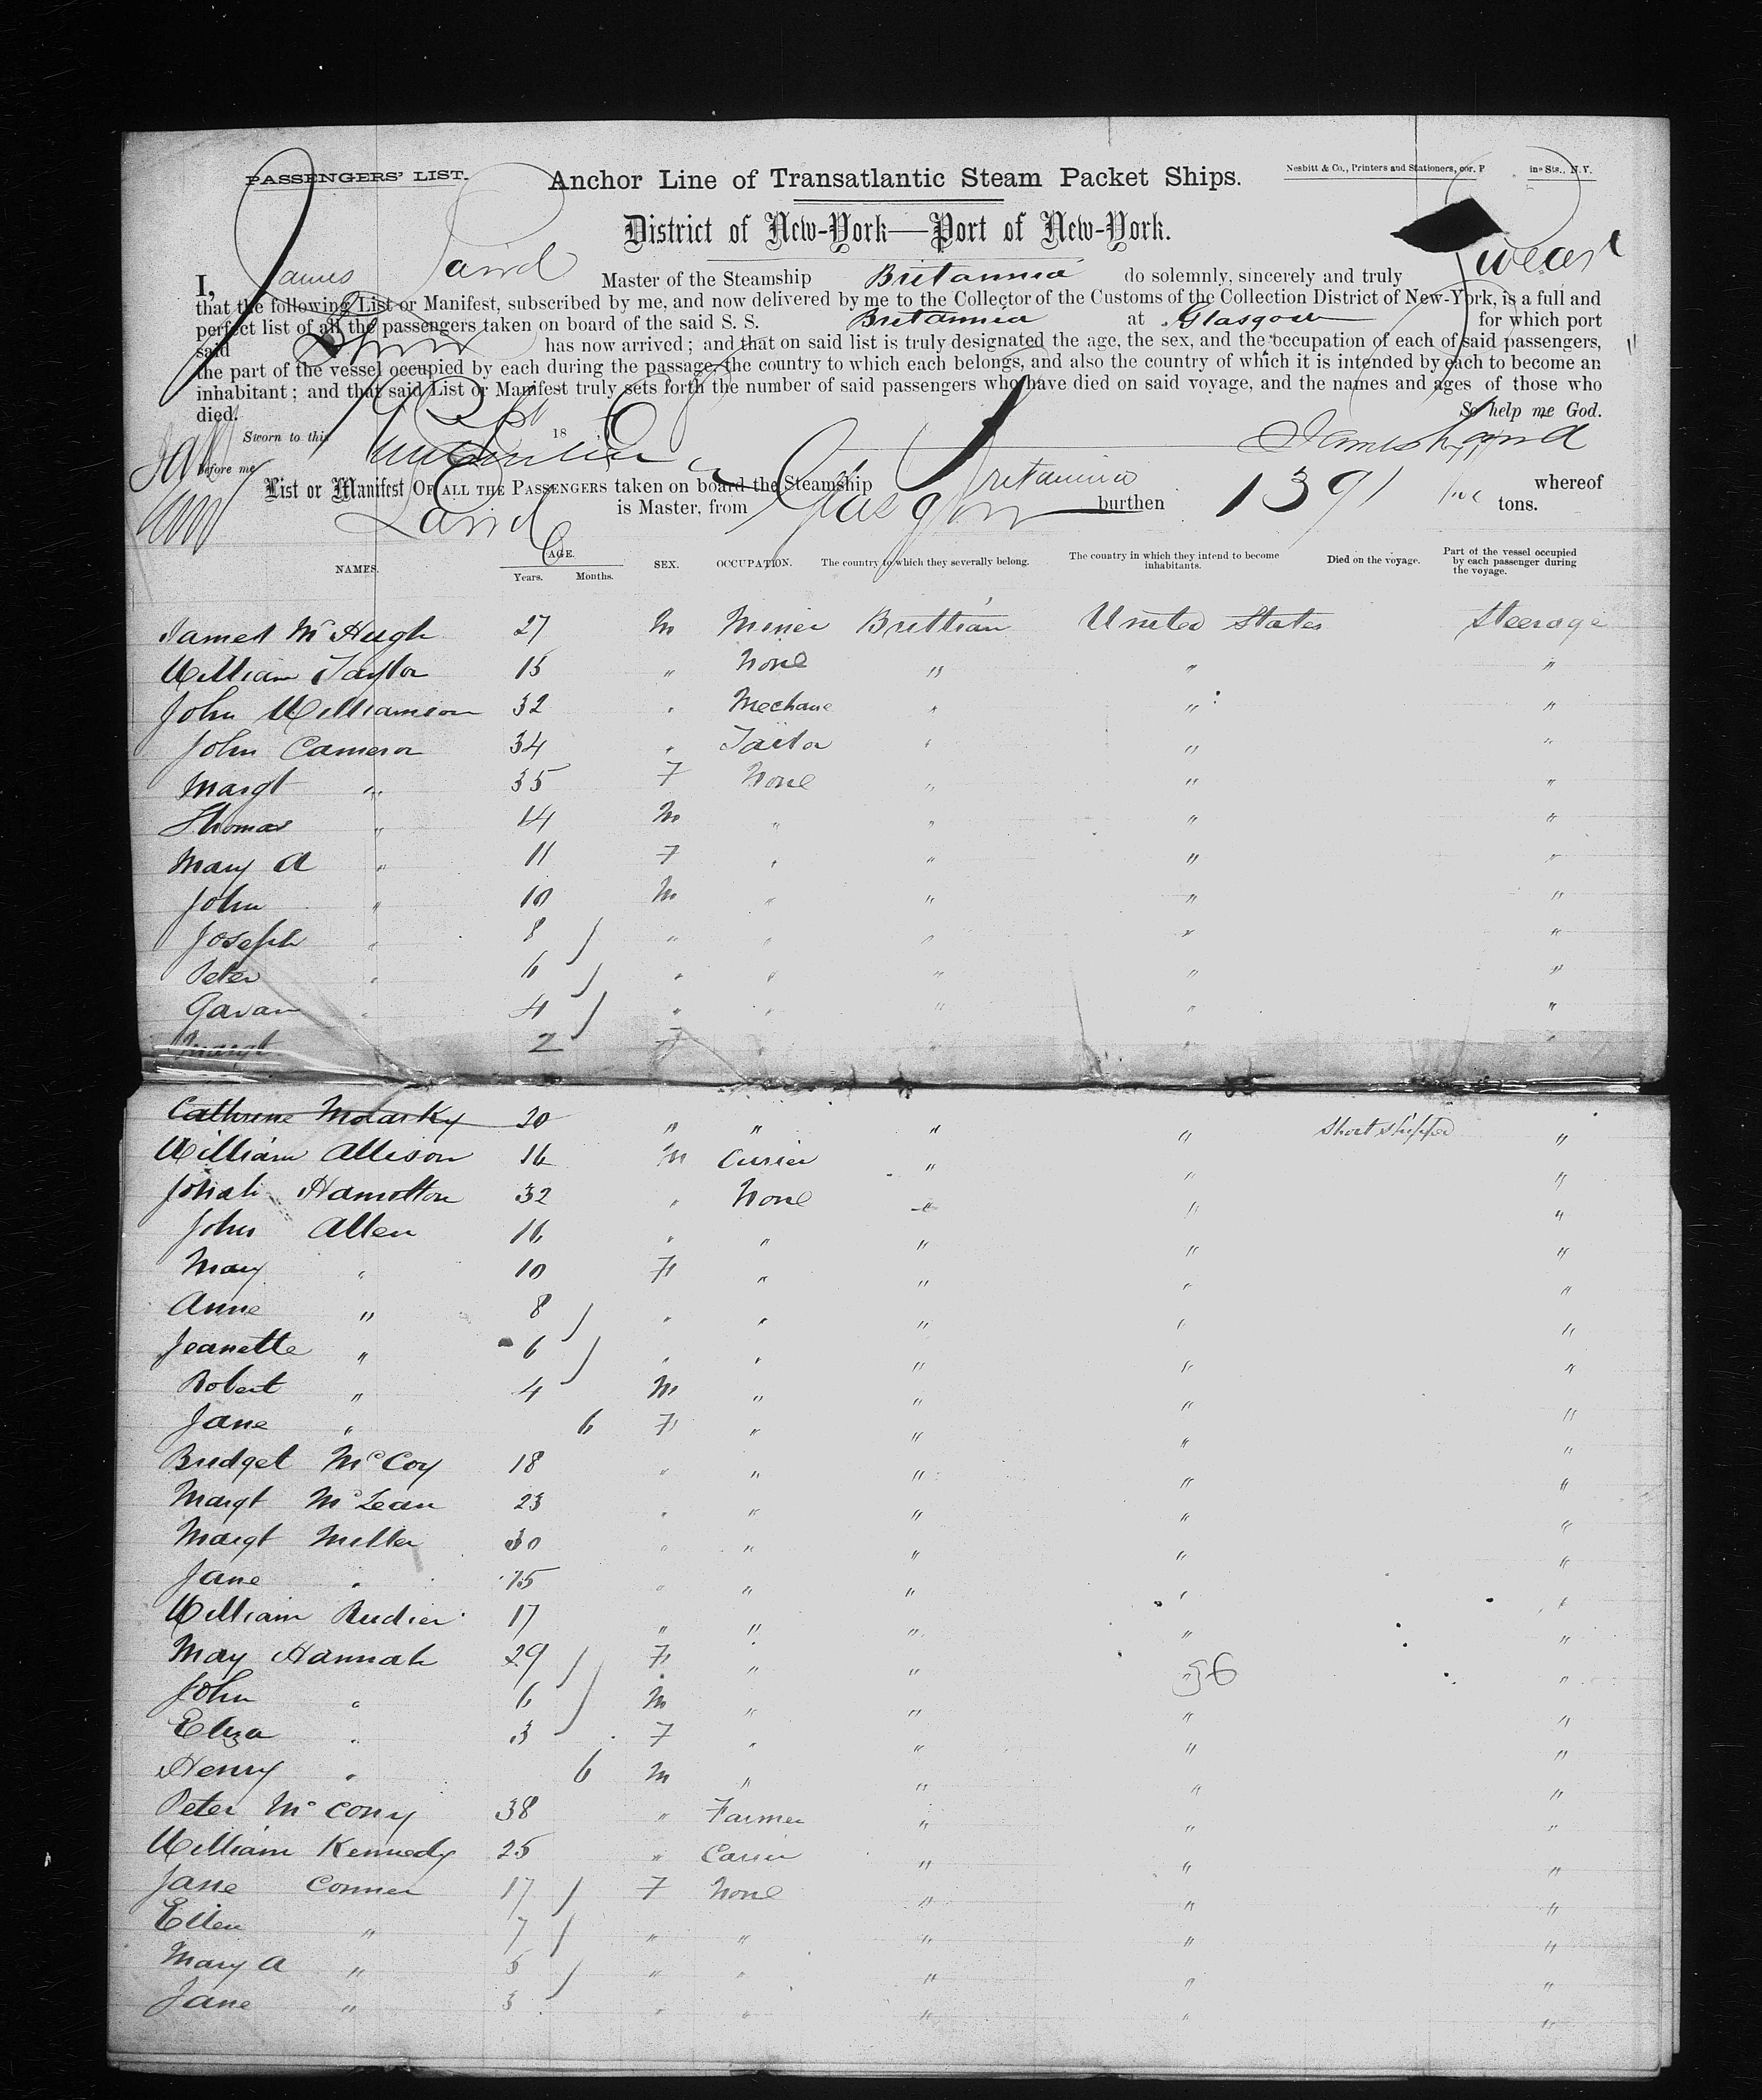 PASSENGERS' LIST.
Anchor Line of Transatlantic Steam Packet Ships.
Nesbitt & Co., Printers and Stationers, cor. P ine Sts., N.Y.
District of New-York—Port of New-York.
I, James Laird Master of the Steamship Britannia do solemnly, sincerely and truly Swear
that the following List or Manifest, subscribed by me, and now delivered by me to the Collector of the Customs of the Collection District of New-York, is a full and
perfect list of all the passengers taken on board of the said S. S. Britannia at Glasgow for which port
said Ship has now arrived; and that on said list is truly designated the age, the sex, and the occupation of each of said passengers,
the part of the vessel occupied by each during the passage, the country to which each belongs, and also the country of which it is intended by each to become an
inhabitant; and that said List or Manifest truly sets forth the number of said passengers who have died on said voyage, and the names and ages of those who
died. So help me God.
Sworn to this 18 6 James Laird
Before me
List or Manifest OF ALL THE PASSENGERS taken on board the Steamship Britannia whereof
Laird is Master, from Glasgow burthen 1391 tons.
NAMES. AGE. Years. Months. SEX. OCCUPATION. The country to which they severally belong. The country in which they intend to become inhabitants. Died on the voyage. Part of the vessel occupied by each passenger during the voyage.
James McHugh 27 M Miner Brittian United States Steerage
William Taylor 15 " None " " "
John Williamson 32 " Mechanic " " "
John Cameron 34 " Tailor " " "
Margt " 35 F None " " "
Thomas " 14 M " " " "
Mary A " 11 F " " " "
John " 10 M " " " "
Joseph " 8 " " " " "
Peter " 6 " " " " "
Gavan " 4 " " " " "
Margt 2 F " " " "
Cathrine 20 " " " " Short shipped "
William Allison 16 M Currier " " "
Hamolton 32 " None " " "
John Allen 16 " " " " "
Mary " 10 F " " " "
Anne " 8 " " " " "
Jeanette " 6 " " " " "
Robert " 4 M " " " "
Jane " 6 F " " " "
Bridget McCoy 18 " " " " "
Margt McLean 23 " " " " "
Margt Miller 30 " " " " "
Jane " 15 " " " " "
William 17 " " " " "
May Hannah 29 F " " " "
56
John " 6 M " " " "
Eliza " 3 F " " " "
Henry " 6 M " " " "
Peter McCony 38 " Farmer " " "
William Kennedy 25 " " " "
Jane Conner 17 F None " " "
Ellen " 7 " " " " "
Mary A " 5 " " " " "
Jane " 3 " " " " "